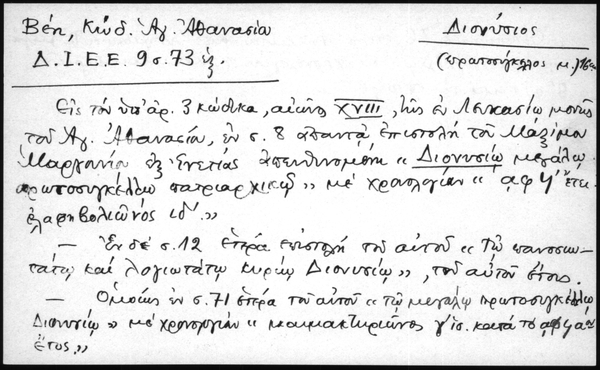 Βέη, Κώδ. Ἁγ. Ἀθανασία
Διονύσιος
Δ.Ι.Ε.Ε. 9 σ. 73 ἑξ.
(πρωτοσύγκελος μ.) 16αι
Εἰς τὸν ὑπ' ἀρ. 3 κώδικα, αἰῶνος XVIII, τῆς ἐν Λευκασίῳ μονῆς
τοῦ Ἁγ. Ἀθανασίου, ἐν σ. 8 ἀπαντᾷ ἐπιστολὴ τοῦ Μαξίμου
Μαργουνίου ἐξ Ἑνετίας ἀπευθυνομένη «Διονυσίῳ μεγάλῳ
πρωτοσυγκέλλῳ πατριαρχικῷ» μὲ χρονολογίαν "αφϞ' ἔτει
ἐλαφηβολιῶνος ιδ'."
— Ἐν δὲ σ. 12 ἑτέρα ἐπιστολὴ τοῦ αὐτοῦ «Τῷ πανοσιω-
τάτῳ καὶ λογιωτάτῳ κυρίῳ Διονυσίῳ», τοῦ αὐτοῦ ἔτους.
— Ὁμοίως ἐν σ. 71 ἑτέρα τοῦ αὐτοῦ «τῷ μεγάλῳ πρωτοσυγκέλλῳ
Διονυσίῳ» μὲ χρονολογίαν «μαιμακτηριῶνος γ' ἱσ. κατὰ τὸ αφϞα
ἔτος.»